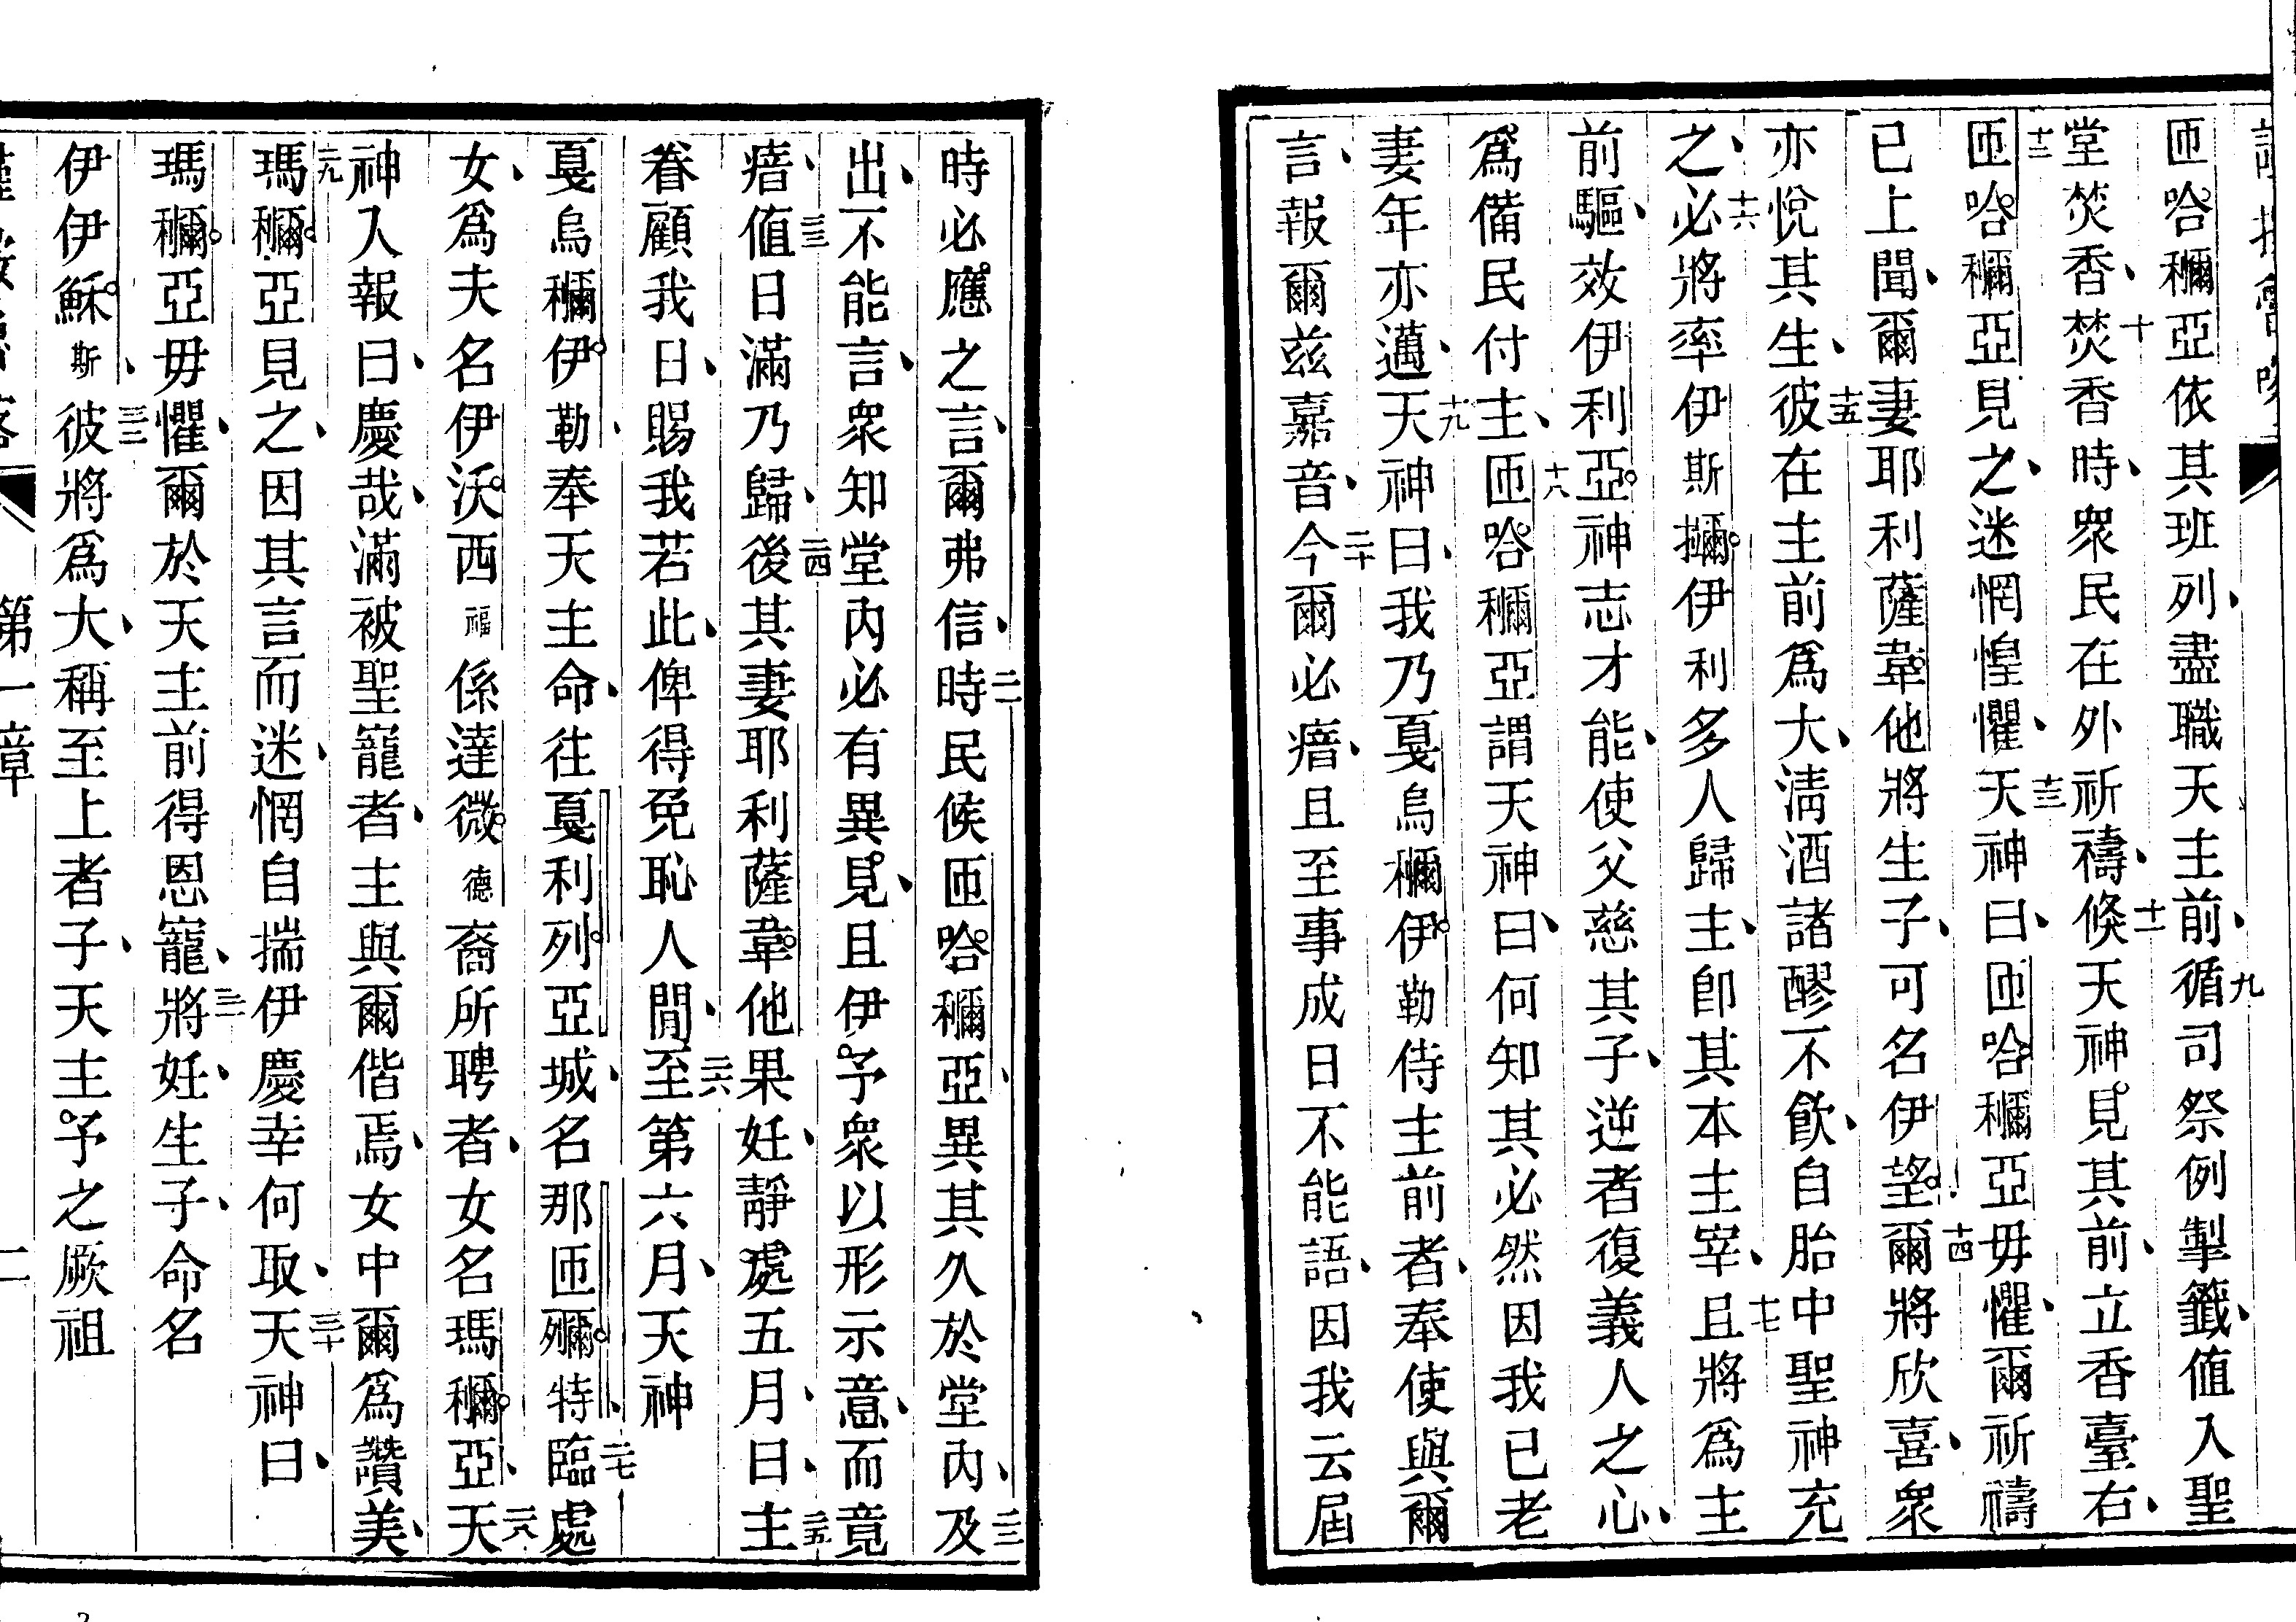 匝哈𥠖亞依其班列、盡職天主前、九循司祭例掣籤、值入聖
堂焚香、十焚香時、衆民在外祈禱、十一倏天神見其前、立香臺右、
十二匝哈𥠖亞見之、迷惘惶懼、十三天神曰、匝哈𥠖亞毋懼、爾祈禱
已上聞、爾妻耶利薩韋他將生子、可名伊望、十四爾將欣喜、衆
亦悅其生、十五彼在主前爲大、淸酒諸醪不飮、自胎中聖神充
之、十六必將率伊斯𢹂伊利多人歸主、卽其本主宰、十七且將爲主
前驅、效伊利亞神志才能、使父慈其子、逆者復義人之心、
爲備民付主、十八匝哈𥠖亞謂天神曰、何知其必然因我已老
妻年亦邁、十九天神曰、我乃戛烏𥠖伊勒侍主前者、奉使與爾
言、報爾玆嘉音、二十今爾必瘖、且至事成日不能語、因我云屆
時必應之言、爾弗信、二一時民俟匝哈𥠖亞、異其久於堂內、二二及
出、不能言、衆知堂內必有異見、且伊予衆以形示意、而竟
瘖、二三值日滿乃歸、二四後其妻耶利薩韋他果妊、靜處五月、曰、二五主
眷顧我日、賜我若此、俾得免恥人閒、二六至第六月、天神
戛烏𥠖伊勒、奉天主命、往戛利列亞城、名那匝𭩠特、二七臨處
女、爲夫名伊沃西福係達微德裔所聘者、女名瑪𥠖亞、二八天
神入報曰、慶哉、滿被聖寵者、主與爾偕焉、女中爾爲讚美、
二九瑪𥠖亞見之、因其言而迷、惘自揣伊慶幸何取、三十天神曰、
瑪𥠖亞毋懼、爾於天主前得恩寵、三一將妊、生子、命名
伊伊穌斯、三二彼將爲大、稱至上者子、天主予之厥祖
第一章
二
2